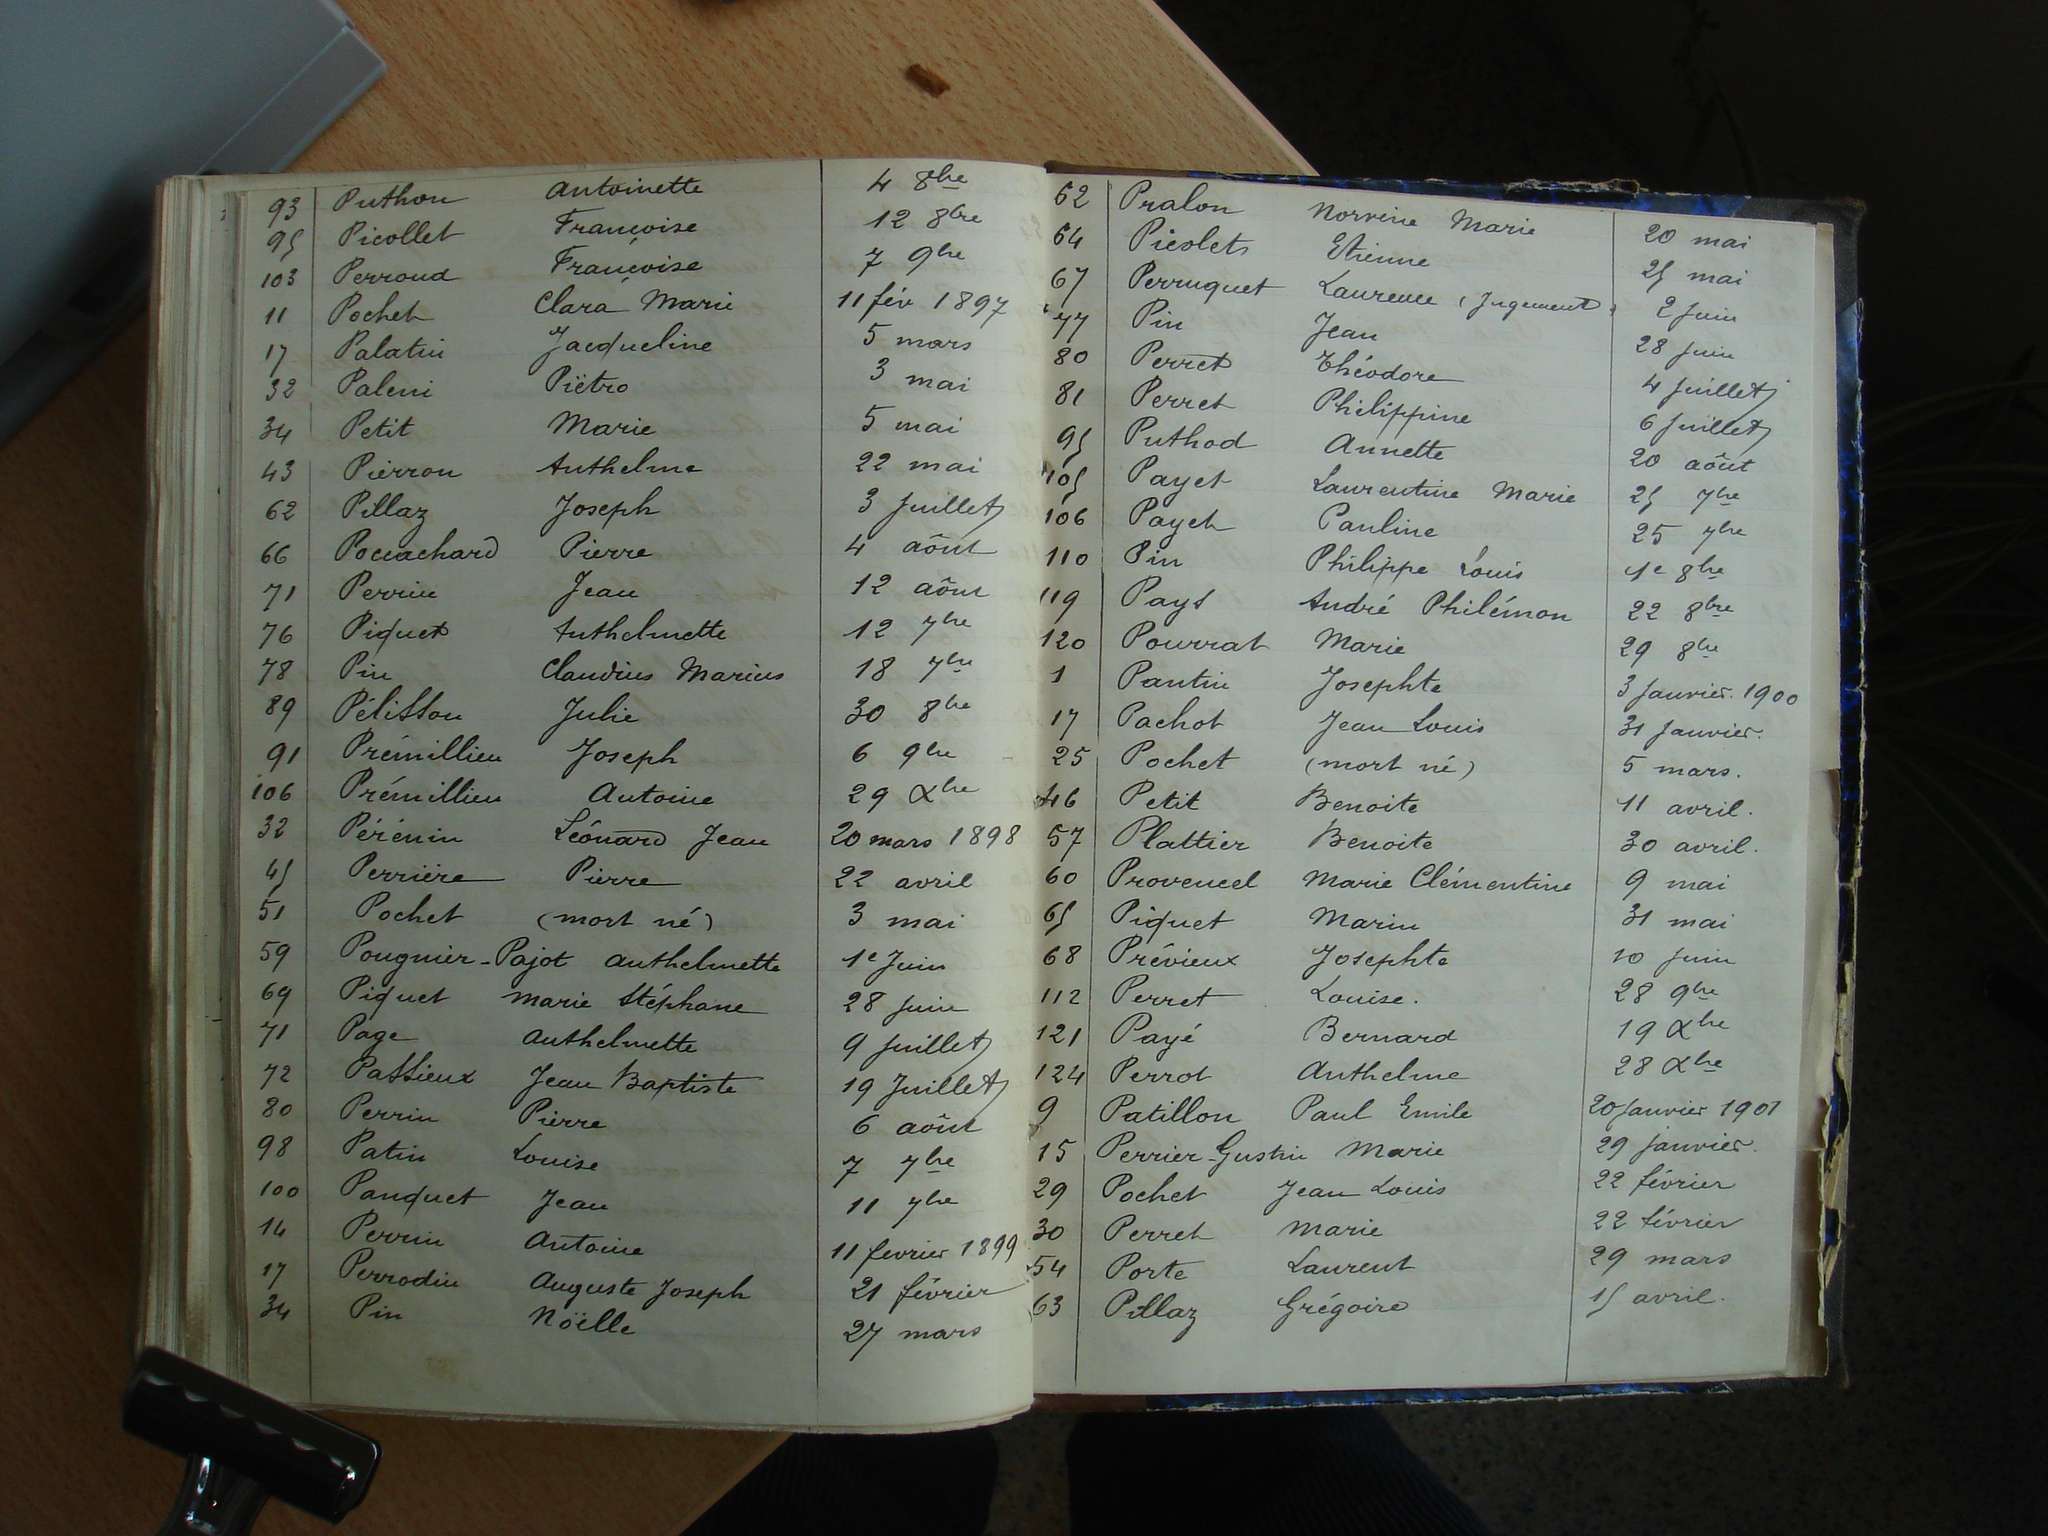 93 Puthon Antoinette 4 8bre
95 Picollet Françoise 12 8bre
103 Perroud Françoise 7 9bre
11 Pochet Clara Marie 11 fév 1897
17 Palatin Jacqueline 5 mars
32 Paleni Piëtro 3 mai
34 Petit Marie 5 mai
43 Pierron Anthelme 22 mai
62 Pillaz Joseph 3 Juillet
66 Pierre 4 aôut
71 Perrin Jean 12 aôut
76 Piquet Anthelmette 12 7bre
78 Pin Claudius Marius 18 7bre
89 Pélisson Julie 30 8bre
91 Prémillieu Joseph 6 9bre
106 Prémillieu Antoine 29 Xbre
32 Pérénin Léonard Jean 20 mars 1898
45 Perrière Pierre 22 avril
51 Pochet (mort né) 3 mai
59 Pougnier-Pajot Anthelmette 1e Juin
69 Piquet Marie Stéphane 28 juin
71 Page Anthelmette 9 Juillet
72 Passieux Jean Baptiste 19 Juillet
80 Perrin Pierre 6 aôut
98 Patin Louise 7 7bre
100 Panquet Jean 11 7bre
14 Perrin Antoine 11 fevrier 1899
17 Perrodin Auguste Joseph 21 février
34 Pin Nöille 27 mars
62 Pralon Norvine Marie 20 mai
64 Picolets Etienne 25 mai
67 Perruquet Laurence (Jugement) 2 Juin
77 Pin Jean 28 Juin
80 Perret Théodore 4 Juillet
81 Perret Philippine 6 Juillet
95 Puthod Annette 20 aôut
105 Payet Laurentine Marie 25 7bre
106 Payet Pauline 25 7bre
110 Pin Philippe Louis 1e 8bre
119 Pays André Philémon 22 8bre
120 Pourrat Marie 29 8bre
1 Pantin Josephte 3 Janvier 1900
17 Pachot Jean Louis 31 Janvier.
25 Pochet (mort né) 5 mars.
46 Petit Benoite 11 avril.
57 Plattier Benoite 30 avril.
60 Provencel Marie Clémentine 9 mai
65 Piquet Marin 31 mai
68 Prévieux Josephte 10 juin
112 Perret Louise. 28 9bre
121 Payé Bernard 19 Xbre
124 Perrot Anthelme 28 Xbre
9 Patillon Paul Emile 20 Janvier 1901
15 Perrier-Gustin Marie 29 janvier.
29 Pochet Jean Louis 22 février
30 Perret Marie 22 février
54 Porte Laurent 29 mars
63 Pillaz Grégoire 15 avril.